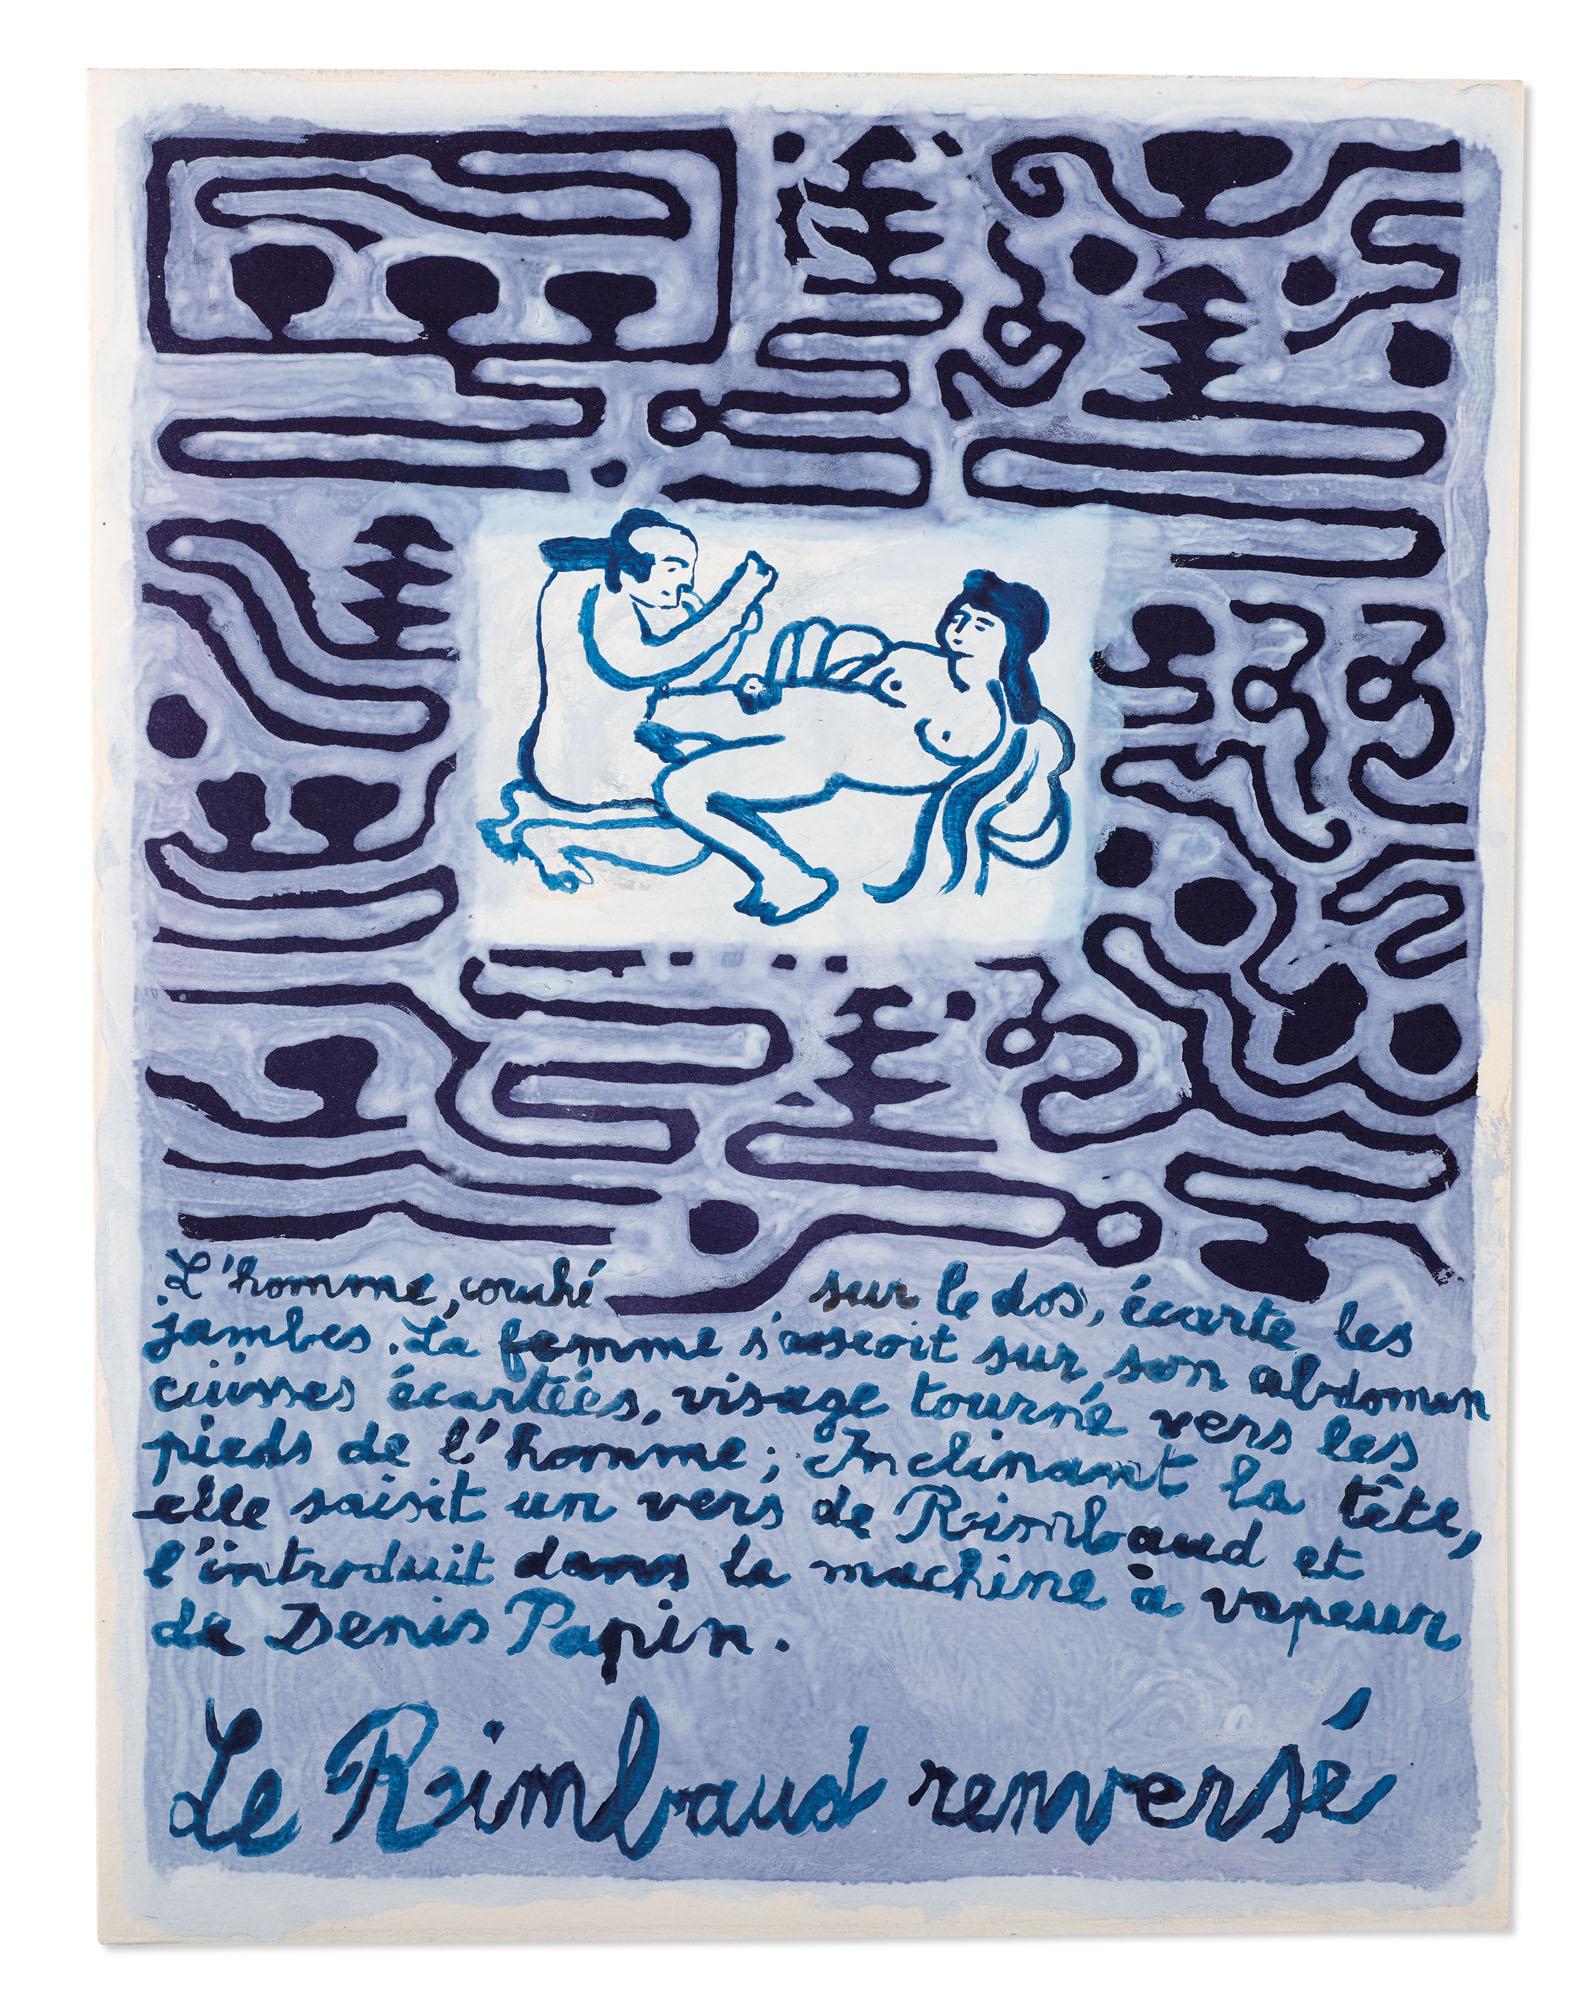 L'homme, couché sur le dos, écarte les
jambes. La femme s'asseoit sur son abdomen
cuisses écartées, visage tourné vers les
pieds de l'homme; Inclinant la tête,
elle saisit un vers de Rimbaud et
l'introduit dans la machine à vapeur
de Denis Papin.
Le Rimbaud renversé